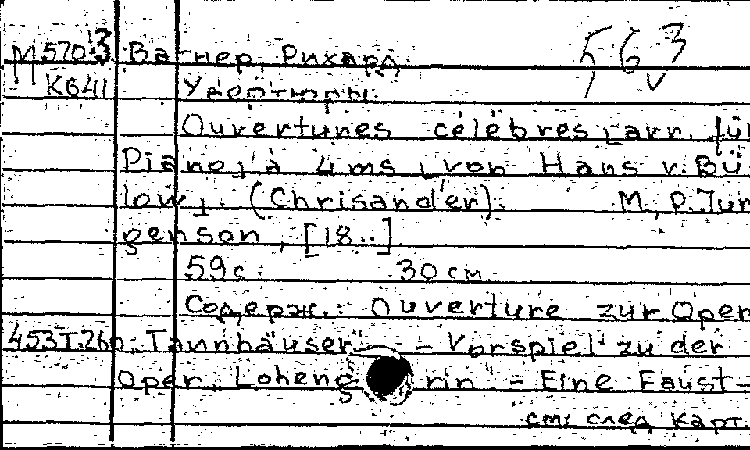 М 570.3 Вагнер, Рихард. 563
К641 Увертюры.
Ouvertures célèbres [arr. für
Piano] à 4 ms [von Hans v. Bü
low]. (Chrisander). M., P. Jur
genson, [18..]
59 с. 30 см.
Содерж.: Ouverture zur Oper
453Т.260 Tannhäuser. - Vorspiel zu der
Oper Lohengrin - Eine Faust-
см. след. карт.